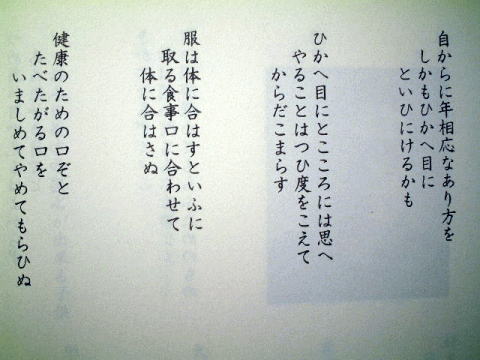 自からに年相応なあり方を
しかもひかへ目に
といひにけるかも
ひかへ目にとこころには思へ
やることはつひ度をこえて
からだこまらす
服は体に合はすといふに
取る食事口に合わせて
体に合はさぬ
健康のための口ぞと
たべたがる口を
いましめてやめてもらひぬ